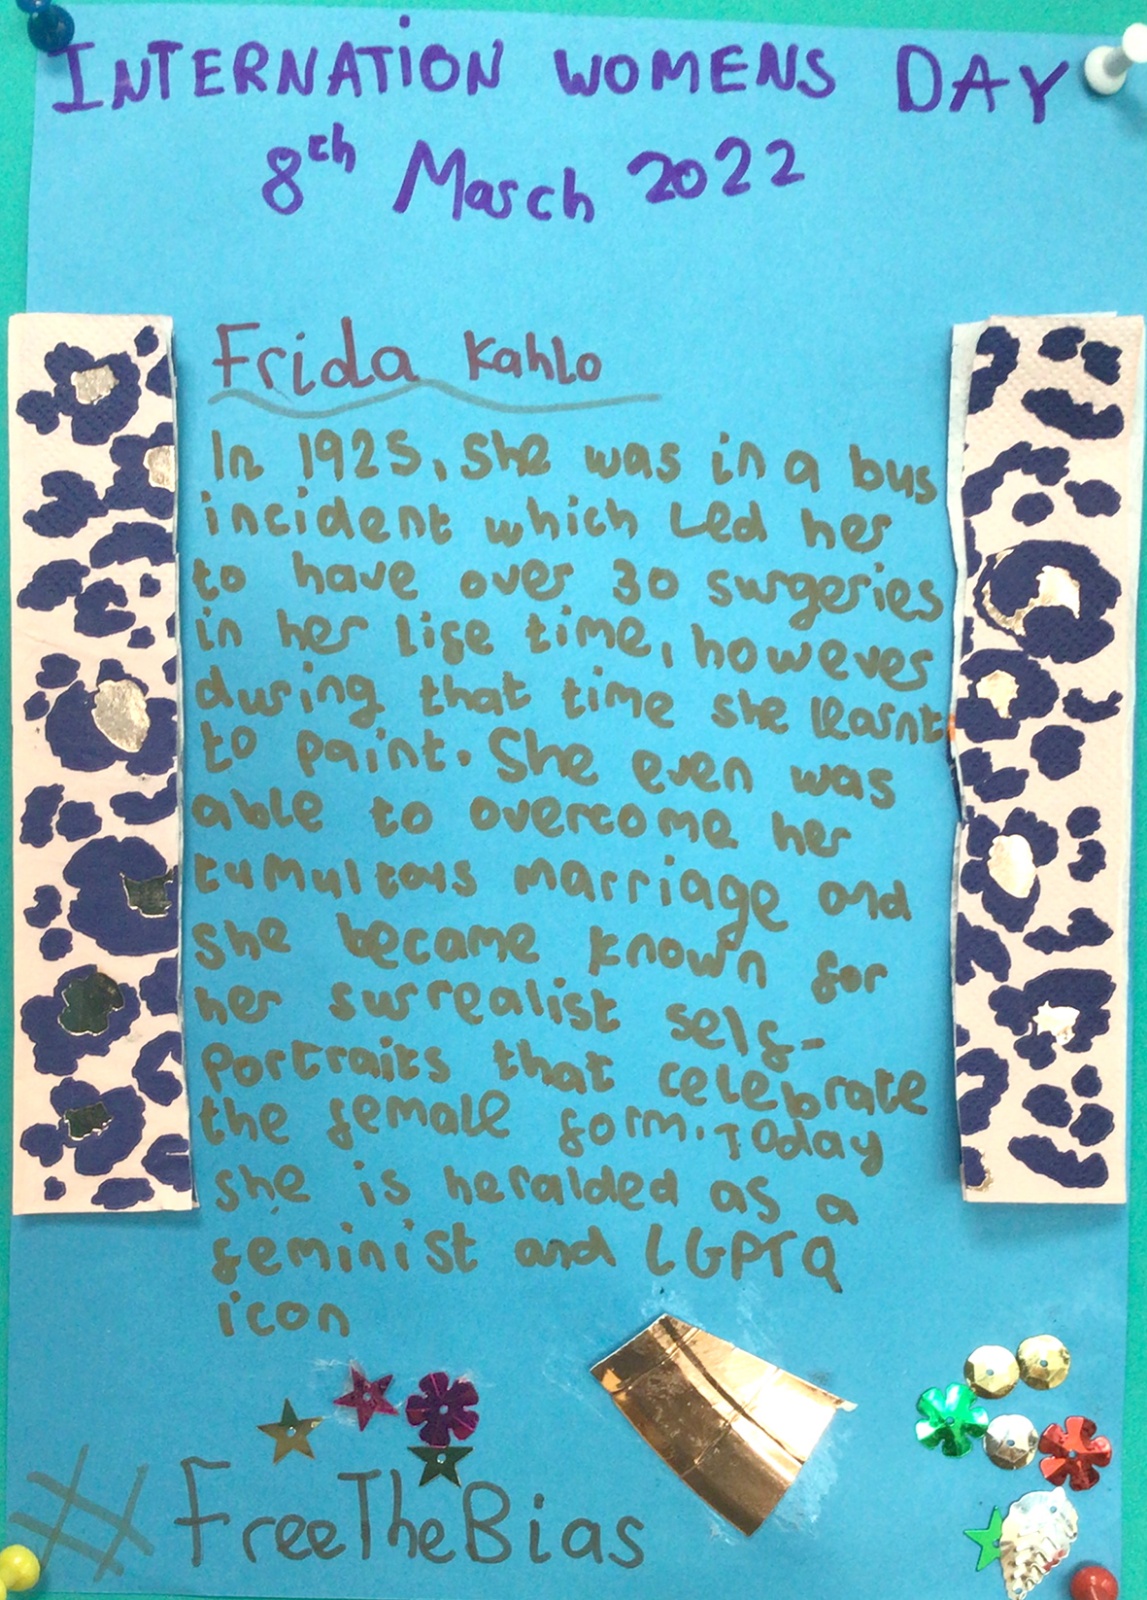 INTERNATION WOMENS DAY
8th March 2022
Frida Kahlo
In 1925, She was in a bus
incident which Led her
to have over 30 surgeries
in her life time, however
during that time she learnt
to paint. She even was
able to overcome her
tumultous marriage and
she became known for
her surrealist self-
portraits that celebrate
the female form. Today
she is heralded as a
feminist and LGPTQ
icon
#FreeTheBias